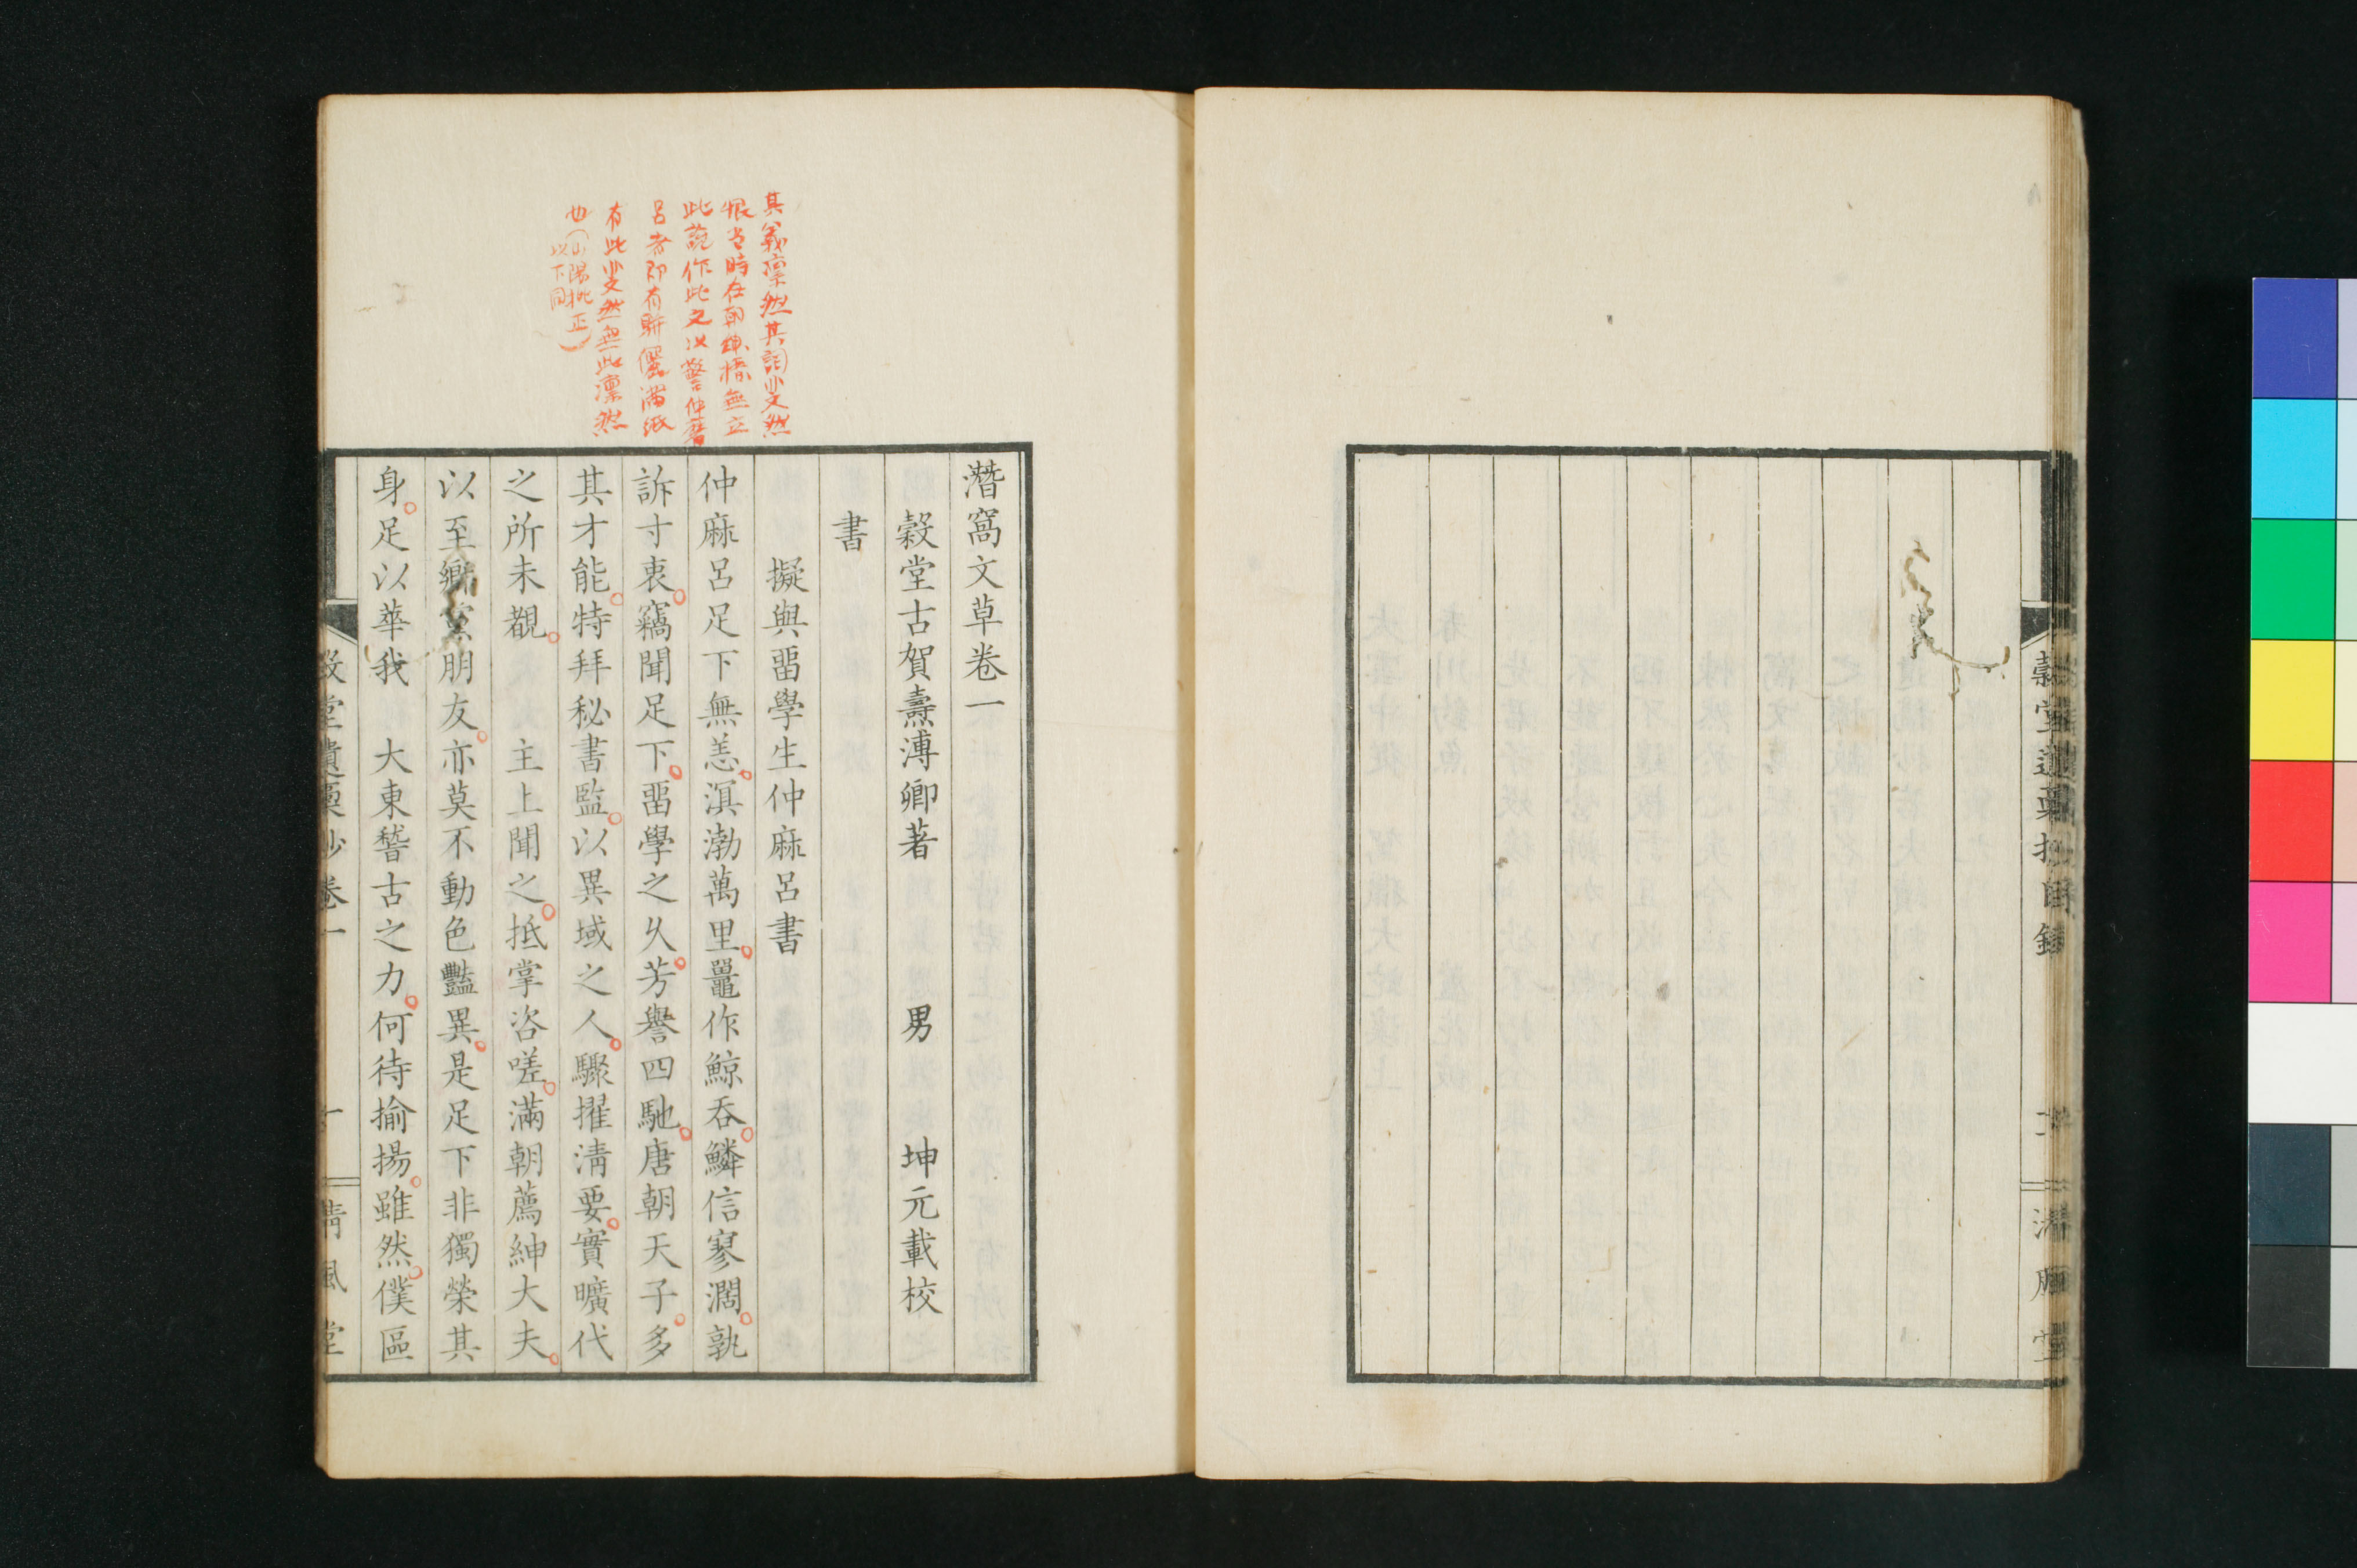 穀堂遺稾抄目錄
清風堂
其義凜然其詞斐然
恨当時在朝 無立
此説作此文以警仲麻
呂者即有駢儷満紙
有此斐然無此凜然
也(山陽批正
以下同)
潛窩文草卷一
穀堂古賀燾溥卿著 男 坤元載校
書
擬與畱學生仲麻呂書
仲麻呂足下無恙溟渤萬里鼉作鯨吞鱗信寥濶孰
訴寸衷竊聞足下畱學之久芳譽四馳唐朝天子多
其才能特拜秘書監以異域之人驟擢淸要實曠代
之所未覩 主上聞之抵掌咨嗟滿朝薦紳大夫
以至鄕黨朋友亦莫不動色豔異是足下非獨榮其
身足以華我 大東稽古之力何待揄揚雖然僕區
穀堂遺稾抄 卷一 一 清風堂